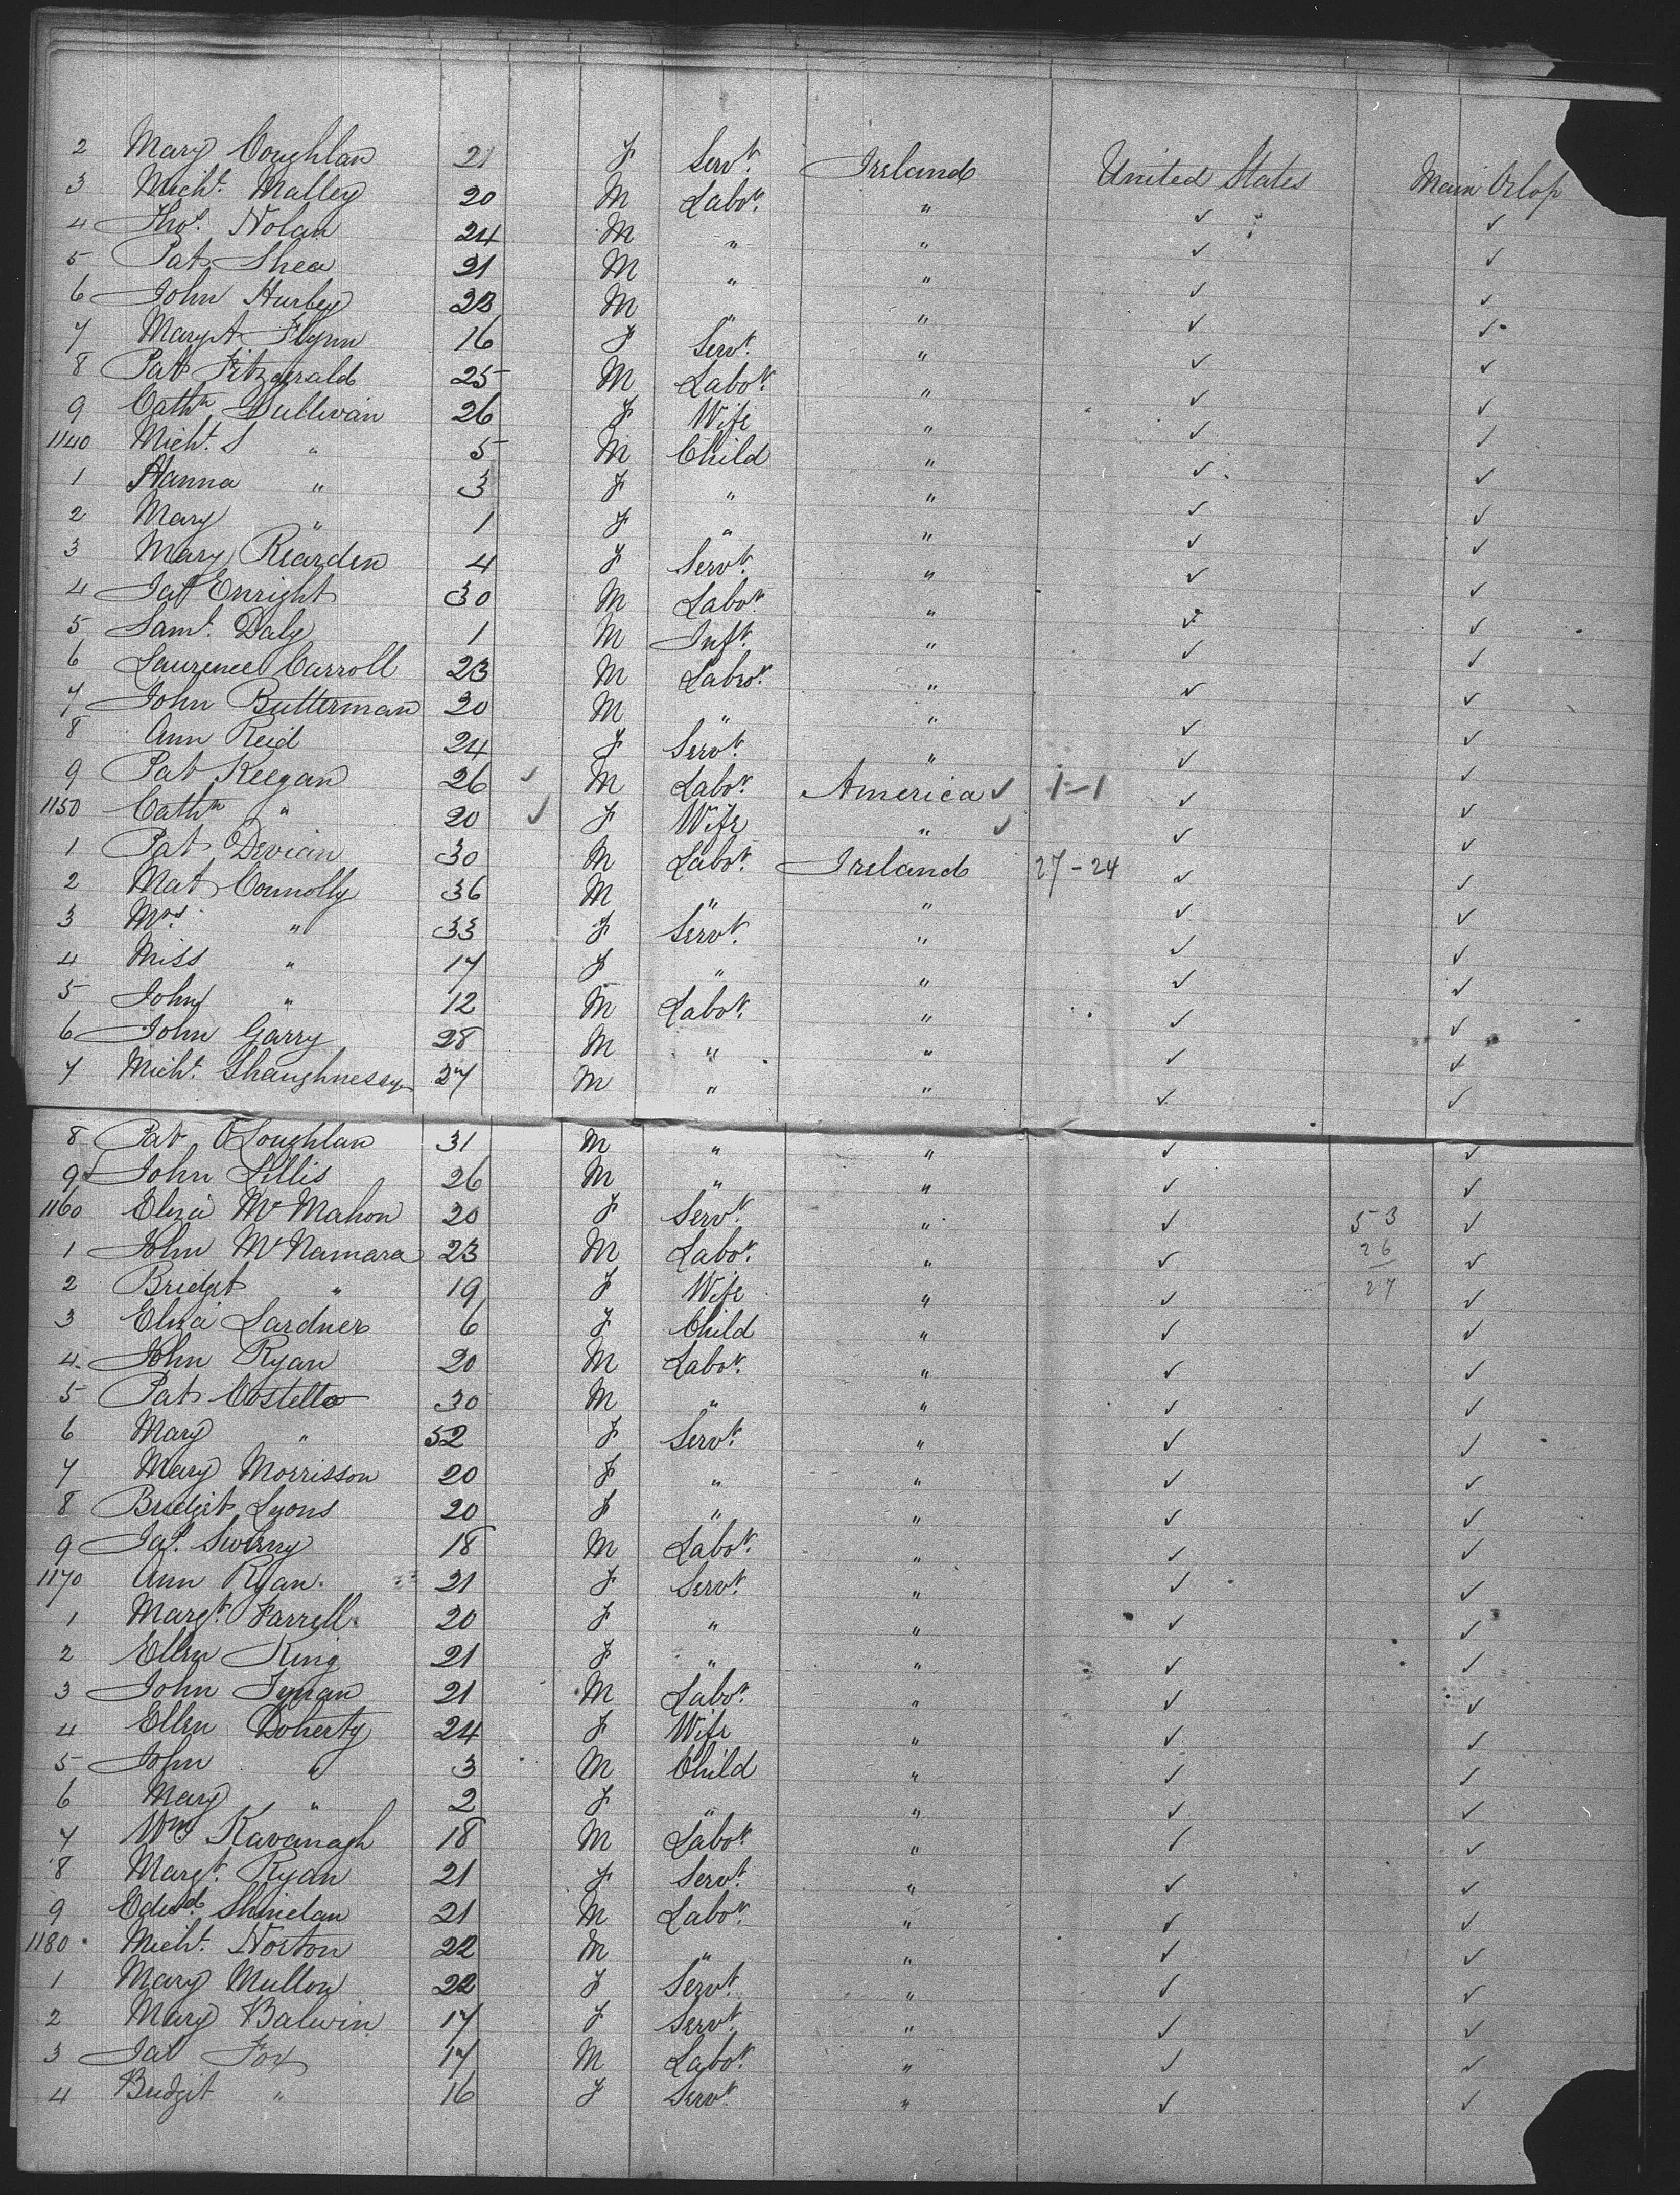 2 Mary Coughlan 21 F Servt. Ireland United States Main Orlop
3 Michl. Malley 20 M Labor. " ✓ ✓
4 Thos. Nolan 24 M " " ✓ ✓
5 Pat Shea 21 M " " ✓ ✓
6 John Hurley 23 M " " ✓ ✓
7 Margt Flynn 16 F Servt. " ✓ ✓
8 Pat Fitzgerald 25 M Labor. " ✓ ✓
9 Cathn Sullivan 26 F Wife " ✓ ✓
1140 Michl. S " 5 M Child " ✓ ✓
1 Hanna " 3 F " " ✓ ✓
2 Mary " 1 F " " ✓ ✓
3 Mary Rearden 4 F Servt. " ✓ ✓
4 Jas Enright 30 M Labor " ✓ ✓
5 Saml. Daly 1 M Inft. " ✓ ✓
6 Laurence Carroll 23 M Labor. " ✓ ✓
7 John Butterman 20 M " " ✓ ✓
8 Ann Reid 24 F Servt. " ✓ ✓
9 Pat Keegan 26 ✓ M Labor. America ✓ 1-1 ✓ ✓
1150 Cathn " 20 ✓ F Wife " ✓ ✓ ✓
1 Pat Devian 30 M Labor. Ireland 27-24 ✓ ✓
2 Mat Connolly 36 M " " ✓ ✓
3 Mrs. " 33 F Servt. " ✓ ✓
4 Miss " 17 F " " ✓ ✓
5 John " 12 M Labor. " ✓ ✓
6 John Garry 28 M " " ✓ ✓
7 Michl. Shaughnessy 27 M " " ✓ ✓
8 Pat O'Loughlan 31 M " " ✓ ✓
9 John Lillis 26 M " " ✓ ✓
1160 Eliza McMahon 20 F Servt. " ✓ 53 ✓
1 John McNamara 23 M Labor. " ✓ 26 ✓
2 Bridget " 19 F Wife " ✓ 27 ✓
3 Eliza Lardner 6 F Child " ✓ ✓
4 John Ryan 20 M Labor. " ✓ ✓
5 Pat Costello 30 M " " ✓ ✓
6 Mary " 52 F Servt. " ✓ ✓
7 Mary Morrisson 20 F " " ✓ ✓
8 Bridget Lyons 20 F " " ✓ ✓
9 Jas. Swerny 18 M Labor. " ✓ ✓
1170 Ann Ryan 21 F Servt. " ✓ ✓
1 Margt. Farrell 20 F " " ✓ ✓
2 Ellen King 21 F " " ✓ ✓
3 John Tynan 21 M Labor. " ✓ ✓
4 Ellen Doherty 24 F Wife " ✓ ✓
5 John " 3 M Child " ✓ ✓
6 Mary " 2 F " " ✓ ✓
7 Wm Kavanagh 18 M Labor. " ✓ ✓
8 Margt. Ryan 21 F Servt. " ✓ ✓
9 Edwd. Shinelan 21 M Labor. " ✓ ✓
1180 Michl. Norton 22 M " " ✓ ✓
1 Mary Mullow 22 F Servt. " ✓ ✓
2 Mary Balwin 17 F Servt. " ✓ ✓
3 Jas Fox 17 M Labor. " ✓ ✓
4 Bridgit " 16 F Servt. " ✓ ✓